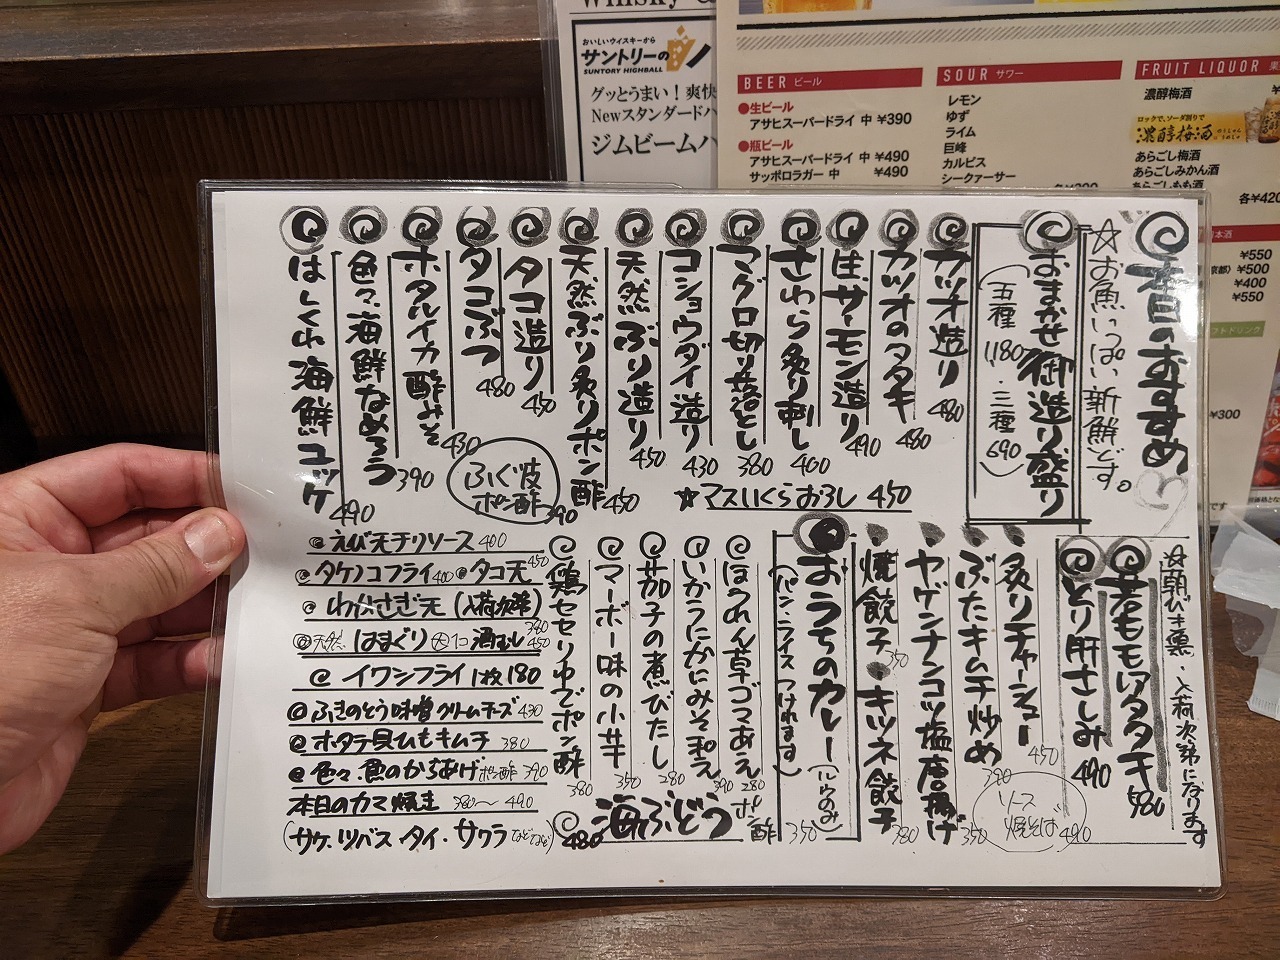 本日のおすすめ
☆お魚いっぱい新鮮です。
おまかせ御造り盛り
(五種 1,180・三種 690)
カツオ造り 480
カツオのタタキ 480
生サーモン造り 490
さわら炙り刺し 400
マグロ切り落とし 380
コショウダイ造り 430
天然ぶり造り 450
天然ぶり炙りポン酢 450
タコ造り 450
タコぶつ 480
ホタルイカ酢みそ 430
色々海鮮なめろう 390
はしくれ海鮮ユッケ 490
ふぐ皮ポン酢 390
☆マスいくらおろし 450
☆朝びき鶏、入荷次第になります
若ももタタキ 580
とり肝さしみ 490
炙りチャーシュー 450
ぶたキムチ炒め 390
ソース焼そば 490
ヤゲンナンコツ塩唐揚げ 350
焼餃子 350・キツネ餃子 380
おうちのカレー(ルウのみ) 350
(パン・ライスつけれます)
ほうれん草ゴマあえ 280
いかうにかにみそ和え 390
茄子の煮びたし 280
マーボー味の小芋 350
鶏セセリゆでポン酢 380
海ぶどう ポン酢 480
えび天チリソース 400
タケノコフライ 400 タコ天 450
わかさぎ天(入荷次第) 380
天然はまぐり 大1コ 酒むし 450
イワシフライ 1枚 180
ふきのとう味噌クリームチーズ 430
ホタテ貝ひもキムチ 380
色々、魚のからあげ ポン酢 390
本日のカマ焼き 380～490
(サケ・ツバス・タイ・サワラ などなど)
おいしいウイスキーから
サントリーの
SUNTORY HIGHBALL
グッとうまい！爽快
Newスタンダードハ
ジムビームハ
BEER ビール
●生ビール
アサヒスーパードライ 中 ¥390
●瓶ビール
アサヒスーパードライ 中 ¥490
サッポロラガー 中 ¥490
SOUR サワー
レモン
ゆず
ライム
巨峰
カルピス
シークァーサー
FRUIT LIQUOR 果
濃醇梅酒
ロックで、ソーダ割りで
濃醇梅酒
あらごし梅酒
あらごしみかん酒
あらごしもも酒
各¥420
本酒
¥550
¥500
¥400
¥550
フトドリンク
¥300